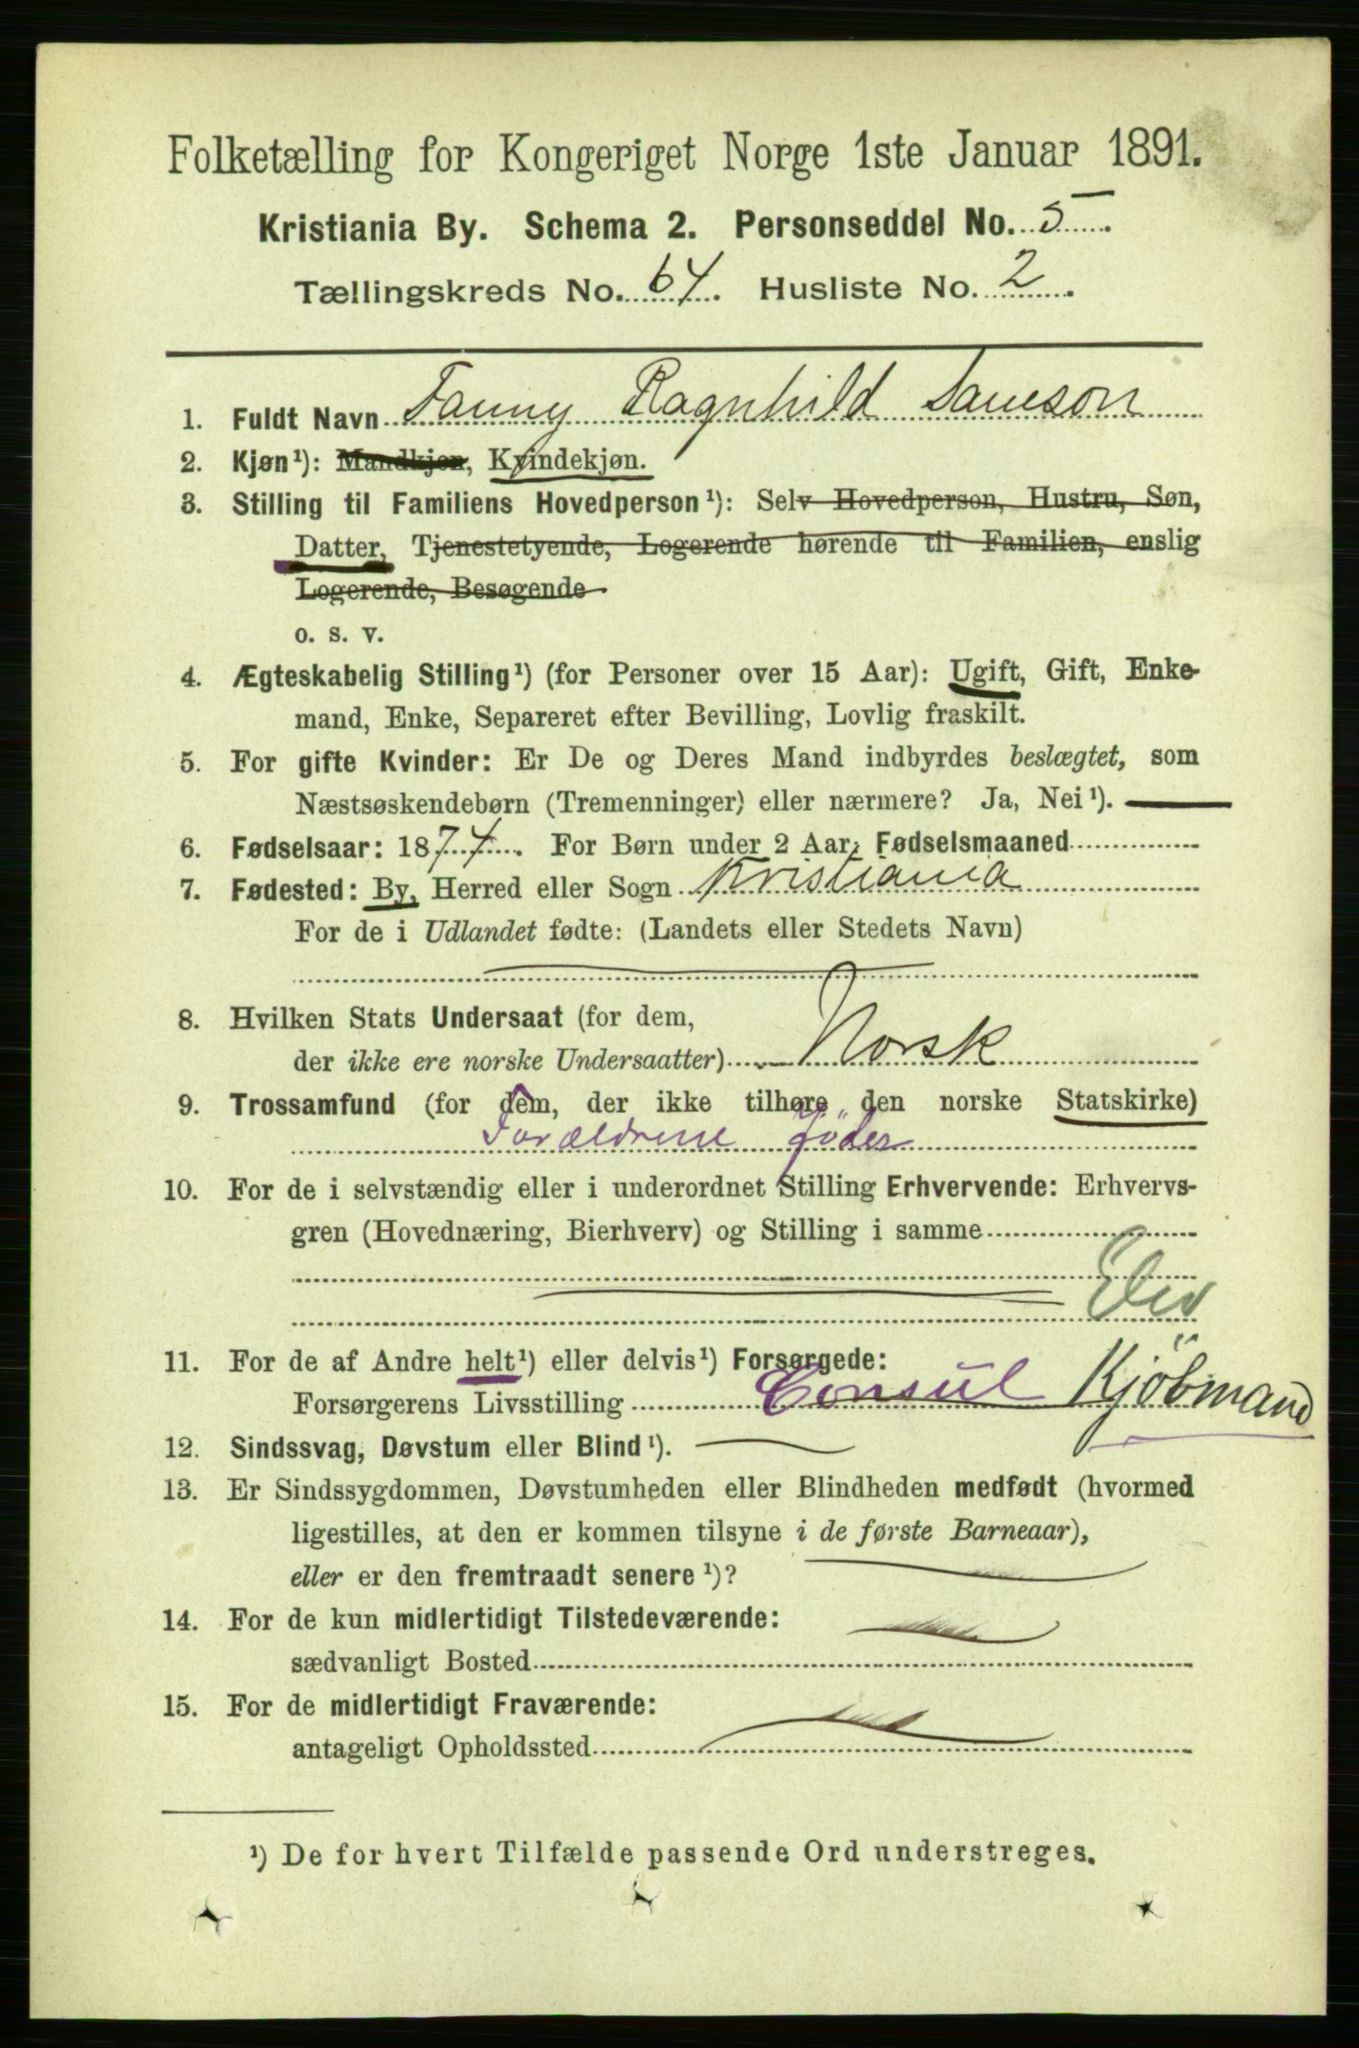 Folketælling for Kongeriget Norge 1ste Januar 1891.
Kristiania By. Schema 2. Personseddel No. 5.
Tællingskreds No. 64. Husliste No. 2.
1. Fuldt Navn Fanny Ragnhild Samson
2. Kjøn¹): Mandkjøn, Kvindekjøn.
3. Stilling til Familiens Hovedperson¹): Selv Hovedperson, Hustru, Søn,
Datter, Tjenestetyende, Logerende hørende til Familien, enslig
Logerende, Besøgende
o. s. v.
4. Ægteskabelig Stilling¹) (for Personer over 15 Aar): Ugift, Gift, Enke-
mand, Enke, Separeret efter Bevilling, Lovlig fraskilt.
5. For gifte Kvinder: Er De og Deres Mand indbyrdes beslægtet, som
Næstsøskendebørn (Tremenninger) eller nærmere? Ja, Nei¹).
6. Fødselsaar: 1874. For Børn under 2 Aar: Fødselsmaaned
7. Fødested: By, Herred eller Sogn Kristiania
For de i Udlandet fødte: (Landets eller Stedets Navn)
8. Hvilken Stats Undersaat (for dem,
der ikke ere norske Undersaatter) Norsk
9. Trossamfund (for dem, der ikke tilhøre den norske Statskirke)
Forældrene Jøder
10. For de i selvstændig eller i underordnet Stilling Erhvervende: Erhvervs-
gren (Hovednæring, Bierhverv) og Stilling i samme
Elev
11. For de af Andre helt¹) eller delvis¹) Forsørgede:
Forsørgerens Livsstilling Consul Kjöbmand
12. Sindssvag, Døvstum eller Blind¹).
13. Er Sindssygdommen, Døvstumheden eller Blindheden medfødt (hvormed
ligestilles, at den er kommen tilsyne i de første Barneaar),
eller er den fremtraadt senere¹)?
14. For de kun midlertidigt Tilstedeværende:
sædvanligt Bosted
15. For de midlertidigt Fraværende:
antageligt Opholdssted
¹) De for hvert Tilfælde passende Ord understreges.